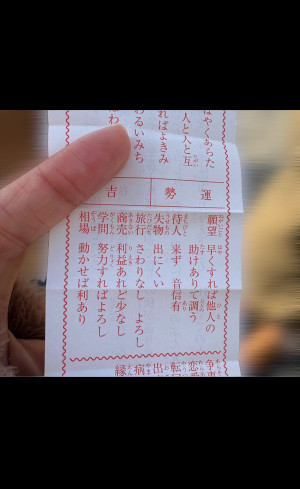 はやくあらた
人と人と互
ればよきみ
わるいみち
運勢 吉
願望 早くすれば他人の
助けありて調う
待人 来ず 音信有
失物 出にくい
旅行 さわりなし よろし
商売 利益あれど少なし
学問 努力すればよろし
相場 動かせば利あり
争事
恋愛
転
出
病
縁